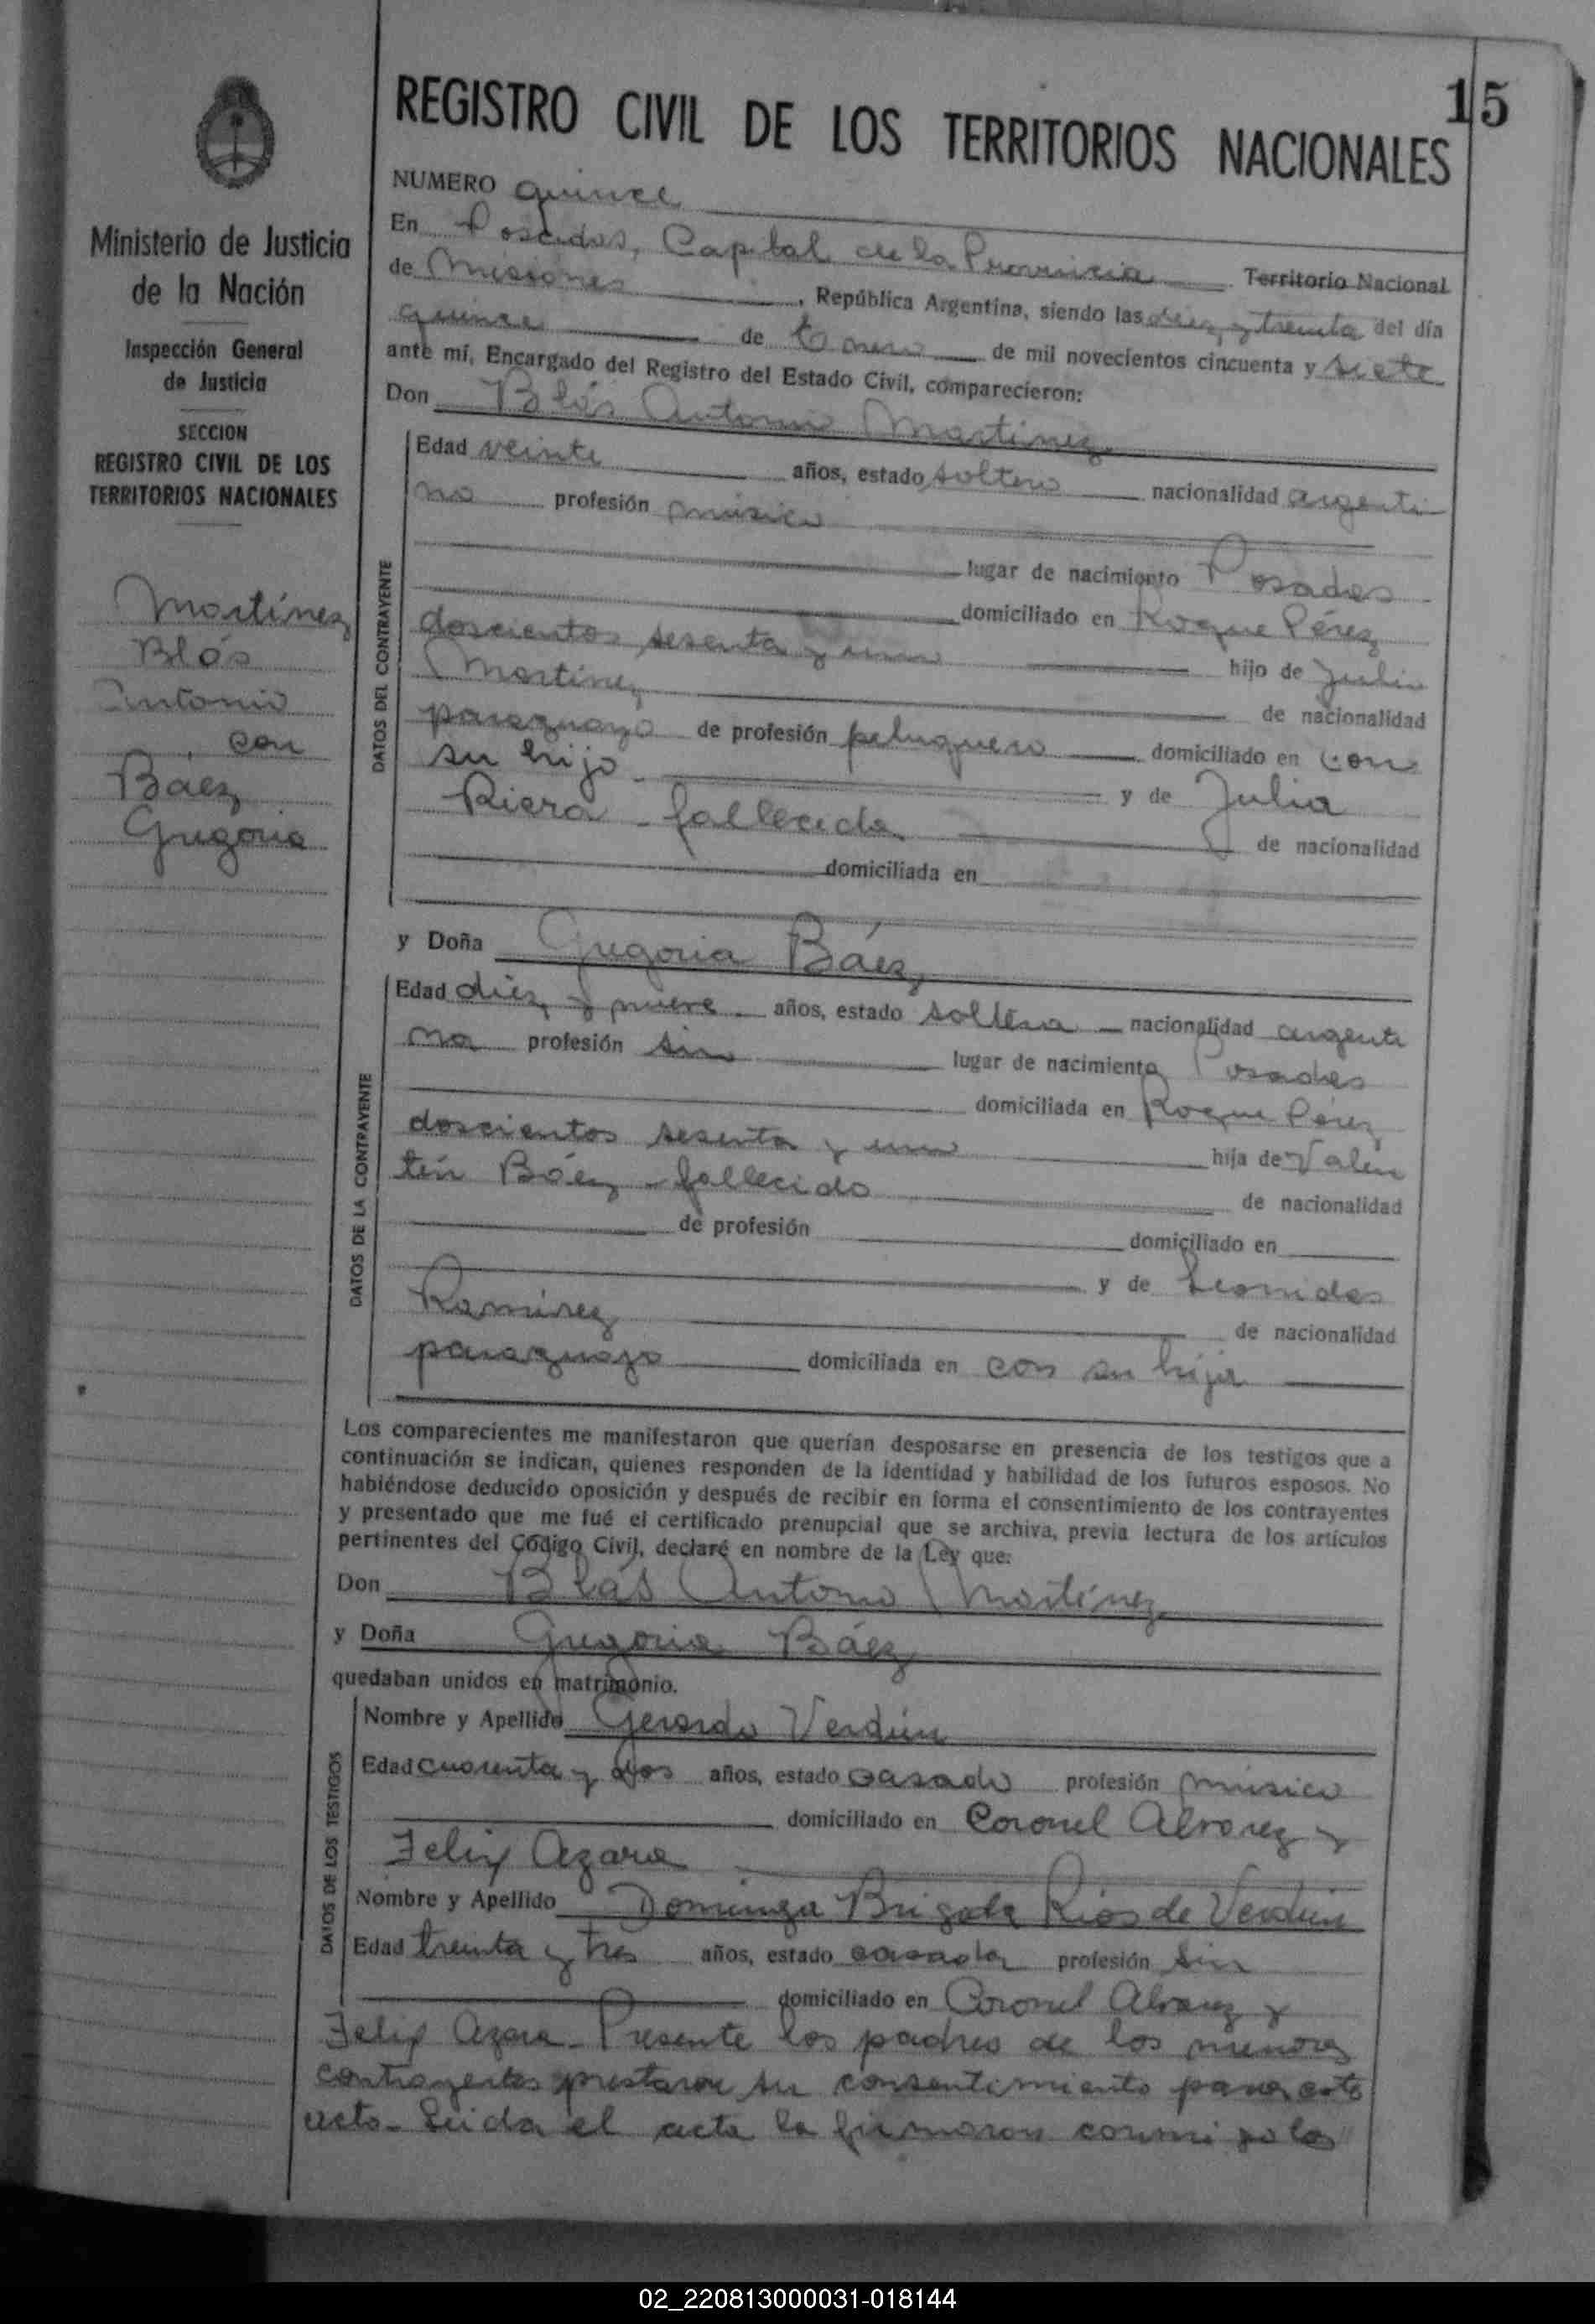 15
REGISTRO CIVIL DE LOS TERRITORIOS NACIONALES
Ministerio de Justicia
de la Nación
Inspección General
de Justicia
SECCION
REGISTRO CIVIL DE LOS
TERRITORIOS NACIONALES
Martínez
Blás
Antonio
con
Báez
Gregoria
NUMERO quince
En Posadas, Capital de la Provincia Territorio Nacional
de Misiones, República Argentina, siendo las diez y treinta del día
quince de Enero de mil novecientos cincuenta y siete
ante mí, Encargado del Registro del Estado Civil, comparecieron:
Don Blás Antonio Martínez
DATOS DEL CONTRAYENTE
Edad veinte años, estado soltero nacionalidad argenti
no profesión músico
lugar de nacimiento Posadas
domiciliado en Roque Pérez
doscientos sesenta y uno hijo de Julio
Martínez de nacionalidad
paraguayo de profesión peluquero domiciliado en con
su hijo y de Julia
Riera - fallecida de nacionalidad
domiciliada en
y Doña Gregoria Báez
DATOS DE LA CONTRAYENTE
Edad diez y nueve años, estado soltera nacionalidad argenti
na profesión sin lugar de nacimiento Posadas
domiciliada en Roque Pérez
doscientos sesenta y uno hija de Valen
tín Báez - fallecido de nacionalidad
de profesión domiciliado en
y de Leonidas
Ramírez de nacionalidad
paraguaya domiciliada en con su hija
Los comparecientes me manifestaron que querían desposarse en presencia de los testigos que a
continuación se indican, quienes responden de la identidad y habilidad de los futuros esposos. No
habiéndose deducido oposición y después de recibir en forma el consentimiento de los contrayentes
y presentado que me fué el certificado prenupcial que se archiva, previa lectura de los artículos
pertinentes del Código Civil, declaré en nombre de la Ley que:
Don Blás Antonio Martínez
y Doña Gregoria Báez
quedaban unidos en matrimonio.
DATOS DE LOS TESTIGOS
Nombre y Apellido Gerardo Verdún
Edad cuarenta y dos años, estado casado profesión músico
domiciliado en Coronel Alvarez y
Felix Azara
Nombre y Apellido Dominga Brigada Ríos de Verdún
Edad treinta y tres años, estado casada profesión sin
domiciliado en Coronel Alvarez y
Felix Azara - Presente los padres de los menores
contrayentes prestaron su consentimiento para este
acto - Leida el acta la firmaron conmigo los
02_220813000031-018144